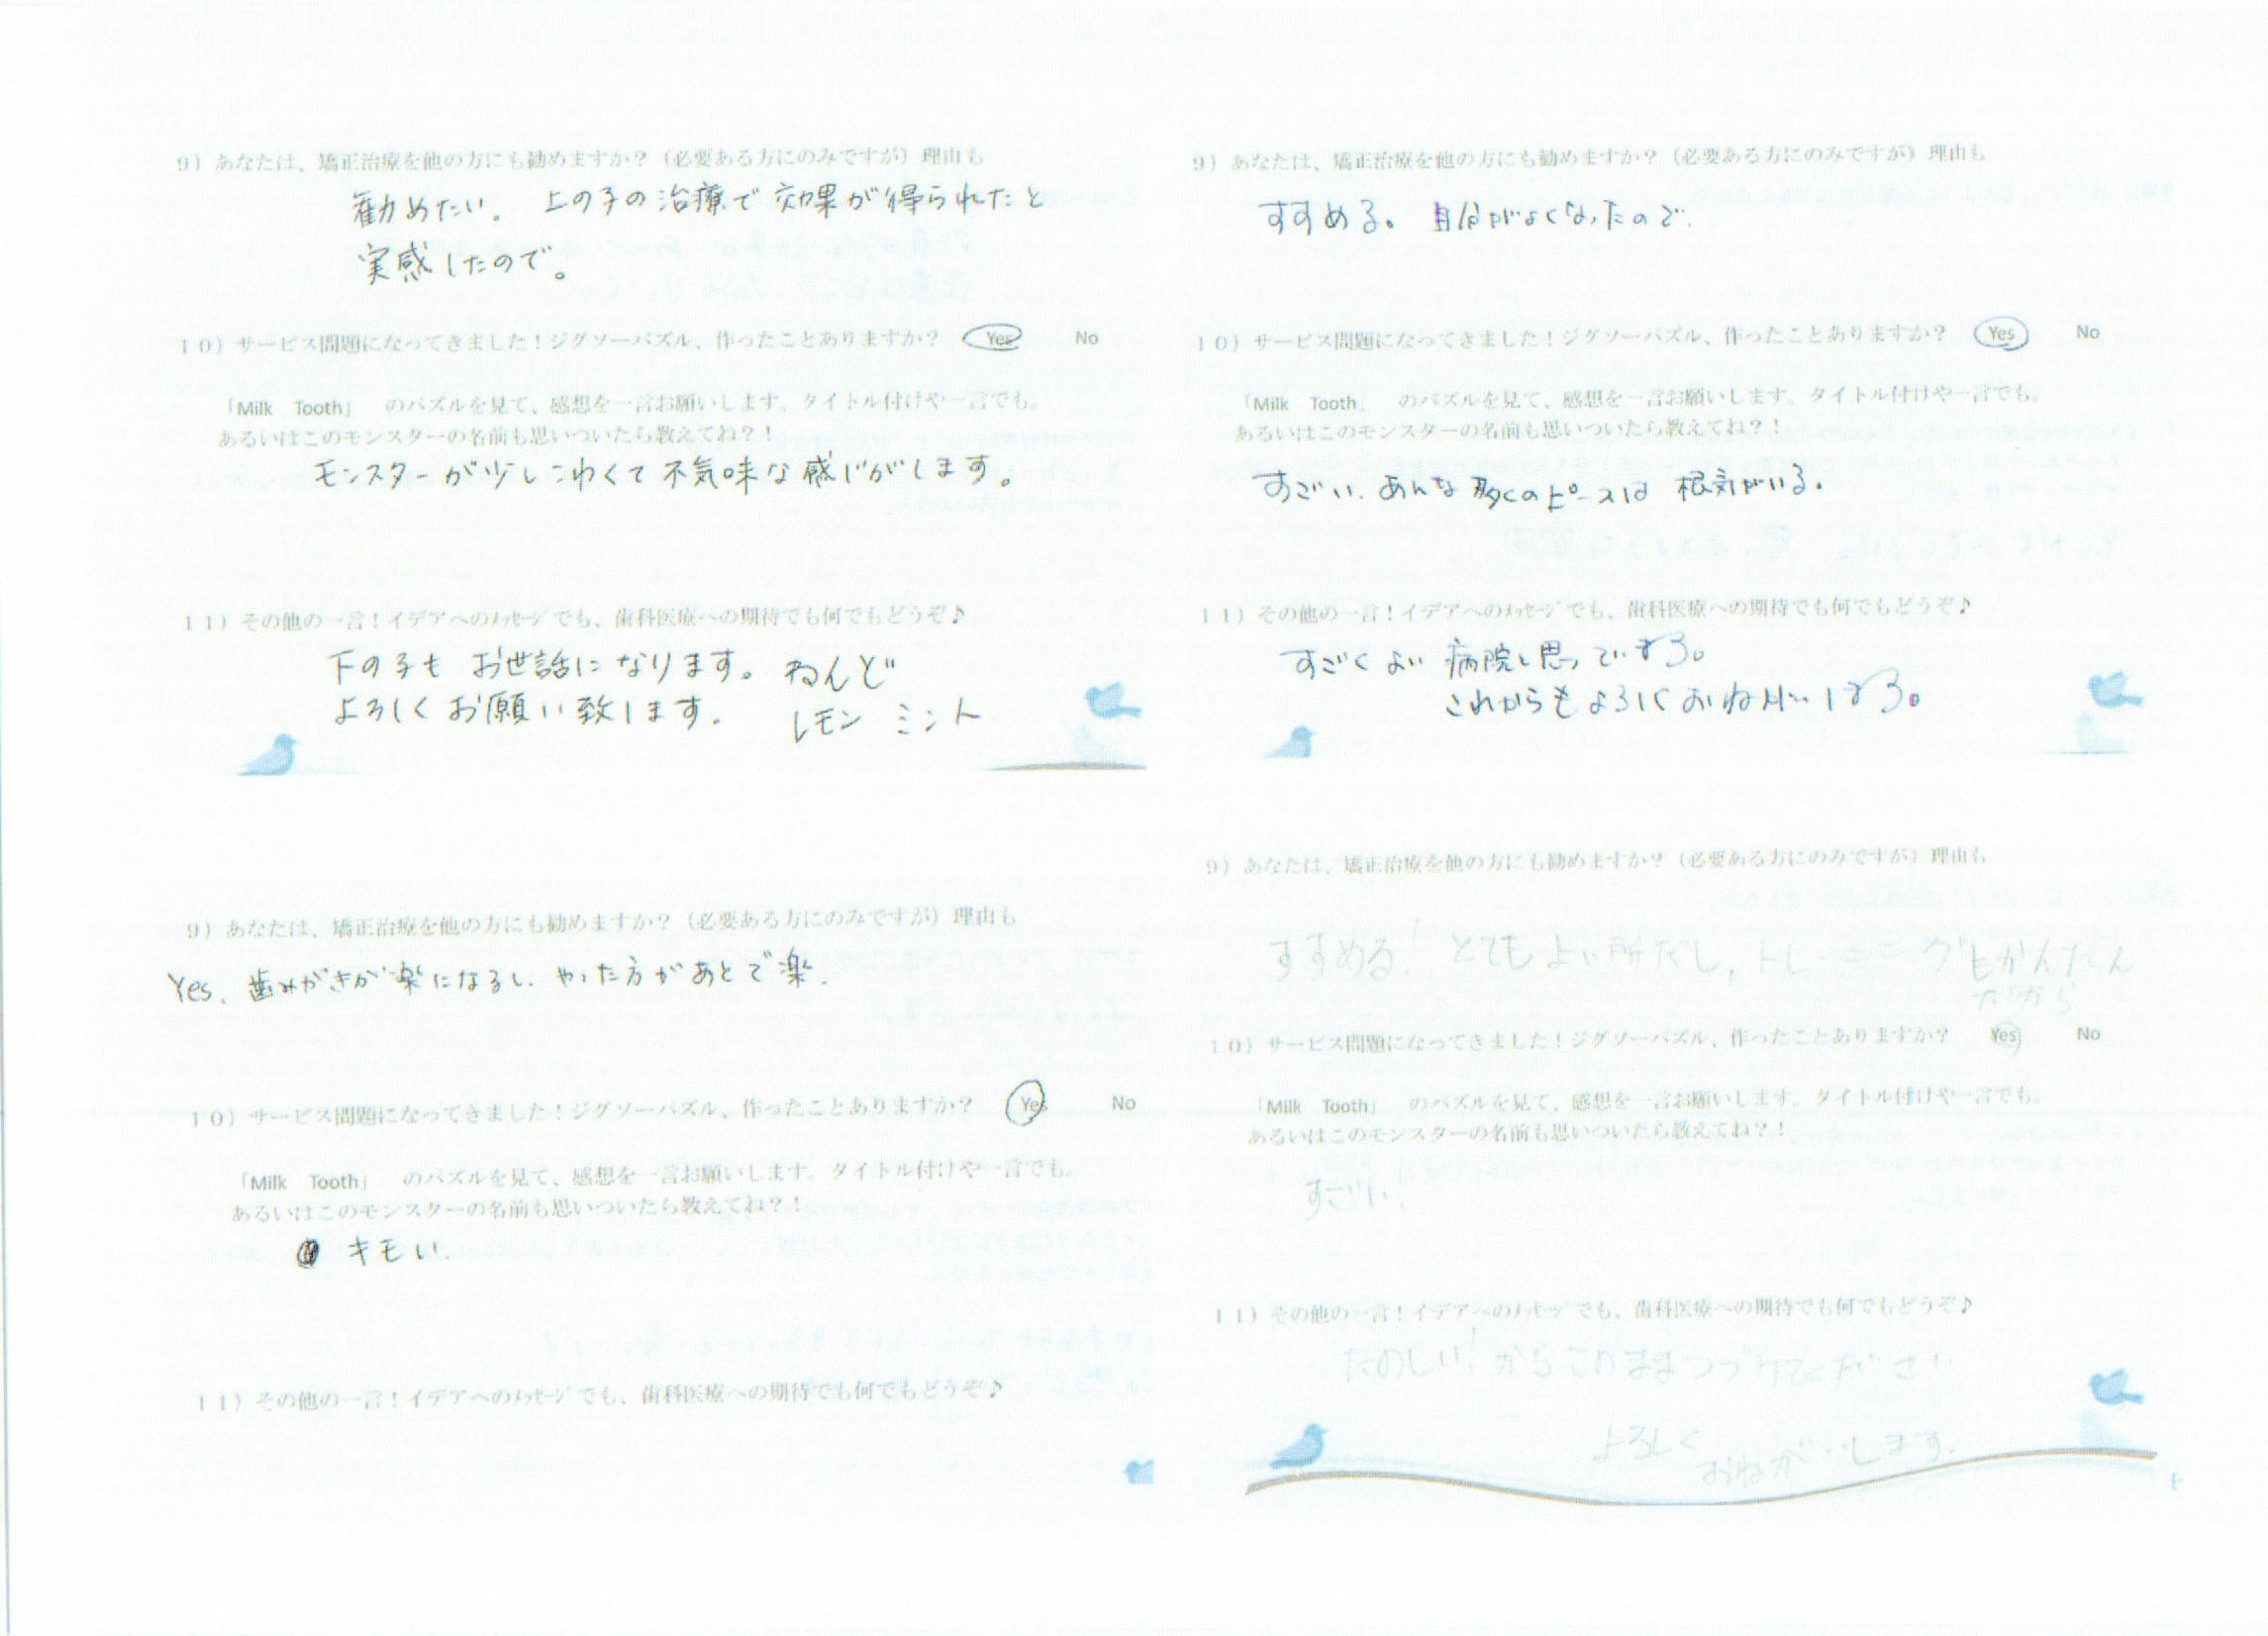 9）あなたは、矯正治療を他の方にも勧めますか？（必要ある方にのみですが）理由も
勧めたい。上の子の治療で効果が得られたと
実感したので。
10）サービス問題になってきました！ジグソーパズル、作ったことありますか？ Yes No
「Milk Tooth」 のパズルを見て、感想を一言お願いします。タイトル付けや一言でも。
あるいはこのモンスターの名前も思いついたら教えてね？！
モンスターが少しこわくて不気味な感じがします。
11）その他の一言！イデアへのﾒｯｾｰｼﾞでも、歯科医療への期待でも何でもどうぞ♪
下の子も お世話になります。 ねんど
よろしくお願い致します。 レモン ミント
9）あなたは、矯正治療を他の方にも勧めますか？（必要ある方にのみですが）理由も
すすめる。自分がよくなったので.
10）サービス問題になってきました！ジグソーパズル、作ったことありますか？ Yes No
「Milk Tooth」 のパズルを見て、感想を一言お願いします。タイトル付けや一言でも。
あるいはこのモンスターの名前も思いついたら教えてね？！
すごい、あんな多くのピースは 根気がいる。
11）その他の一言！イデアへのﾒｯｾｰｼﾞでも、歯科医療への期待でも何でもどうぞ♪
すごくよい 病院と思っています。
これからもよろしくおねがいします。
9）あなたは、矯正治療を他の方にも勧めますか？（必要ある方にのみですが）理由も
Yes、歯みがきが楽になるし、やった方があとで楽.
10）サービス問題になってきました！ジグソーパズル、作ったことありますか？ Yes No
「Milk Tooth」 のパズルを見て、感想を一言お願いします。タイトル付けや一言でも。
あるいはこのモンスターの名前も思いついたら教えてね？！
キモい.
11）その他の一言！イデアへのﾒｯｾｰｼﾞでも、歯科医療への期待でも何でもどうぞ♪
9）あなたは、矯正治療を他の方にも勧めますか？（必要ある方にのみですが）理由も
すすめる！とてもよい所だし，トレーニングもかんたん
だから
10）サービス問題になってきました！ジグソーパズル、作ったことありますか？ Yes No
「Milk Tooth」 のパズルを見て、感想を一言お願いします。タイトル付けや一言でも。
あるいはこのモンスターの名前も思いついたら教えてね？！
すごい.
11）その他の一言！イデアへのﾒｯｾｰｼﾞでも、歯科医療への期待でも何でもどうぞ♪
たのしい！からこのままつづけてください
よろしく
おねがいします.